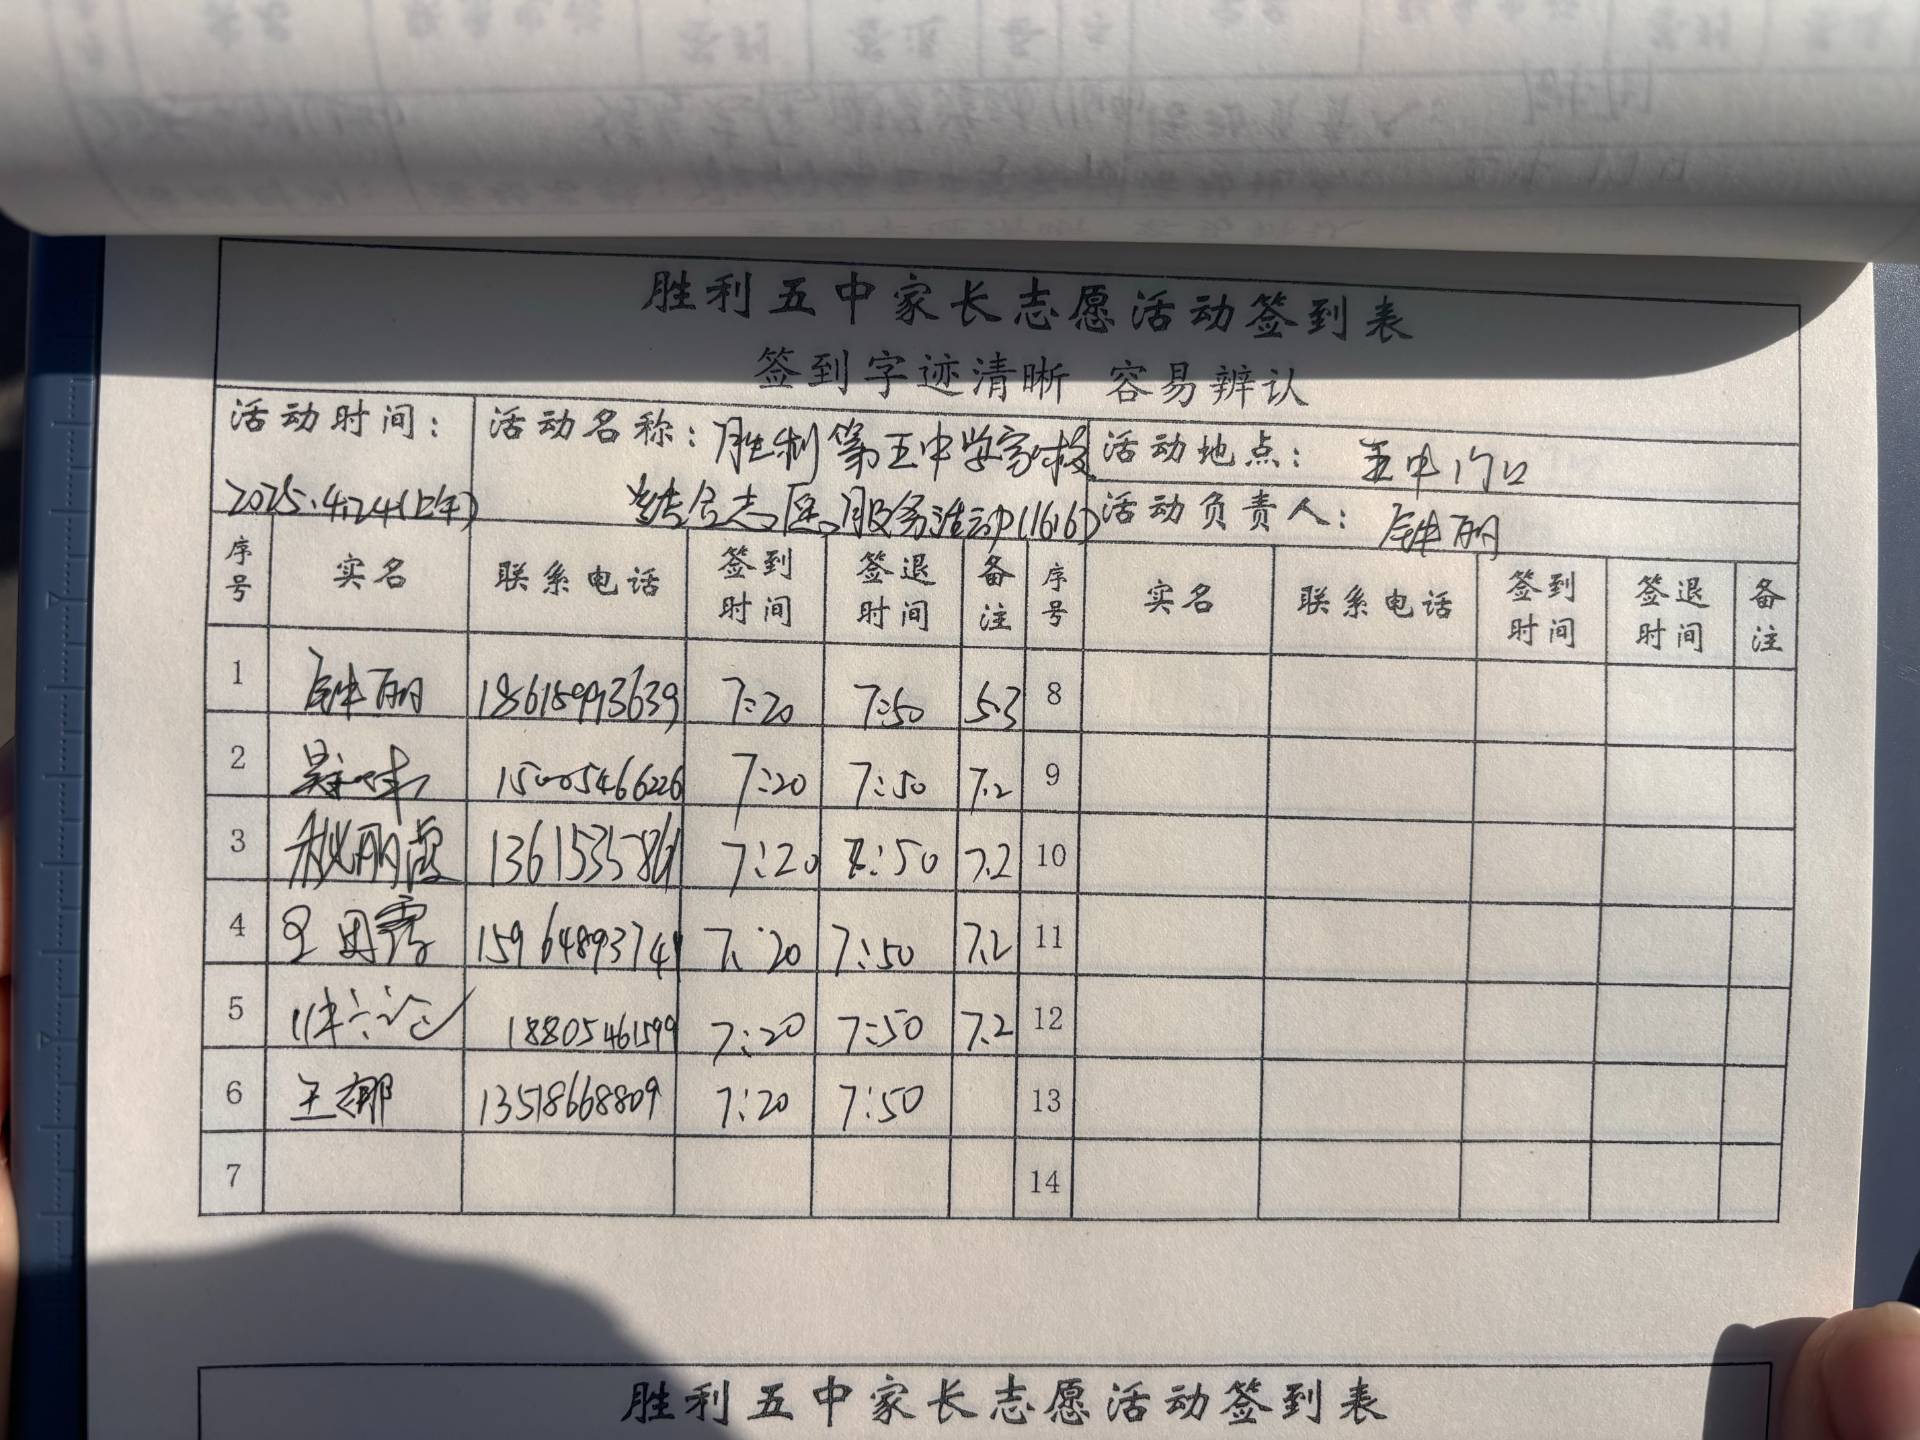 胜利五中家长志愿活动签到表
签到字迹清晰 容易辨认
活动时间： 活动名称：胜利第五中学家校 活动地点： 五中门口
2025.4.24(上午) 志愿服务活动(1616) 活动负责人： 钟丽
序号 实名 联系电话 签到时间 签退时间 备注 序号 实名 联系电话 签到时间 签退时间 备注
1 钟丽 18615993639 7:20 7:50 5.3 8
2 15005466226 7:20 7:50 7.2 9
3 7:20 7:50 7.2 10
4 7:20 7:50 7.2 11
5 18805461599 7:20 7:50 7.2 12
6 王娜 13518668809 7:20 7:50 13
7 14
胜利五中家长志愿活动签到表